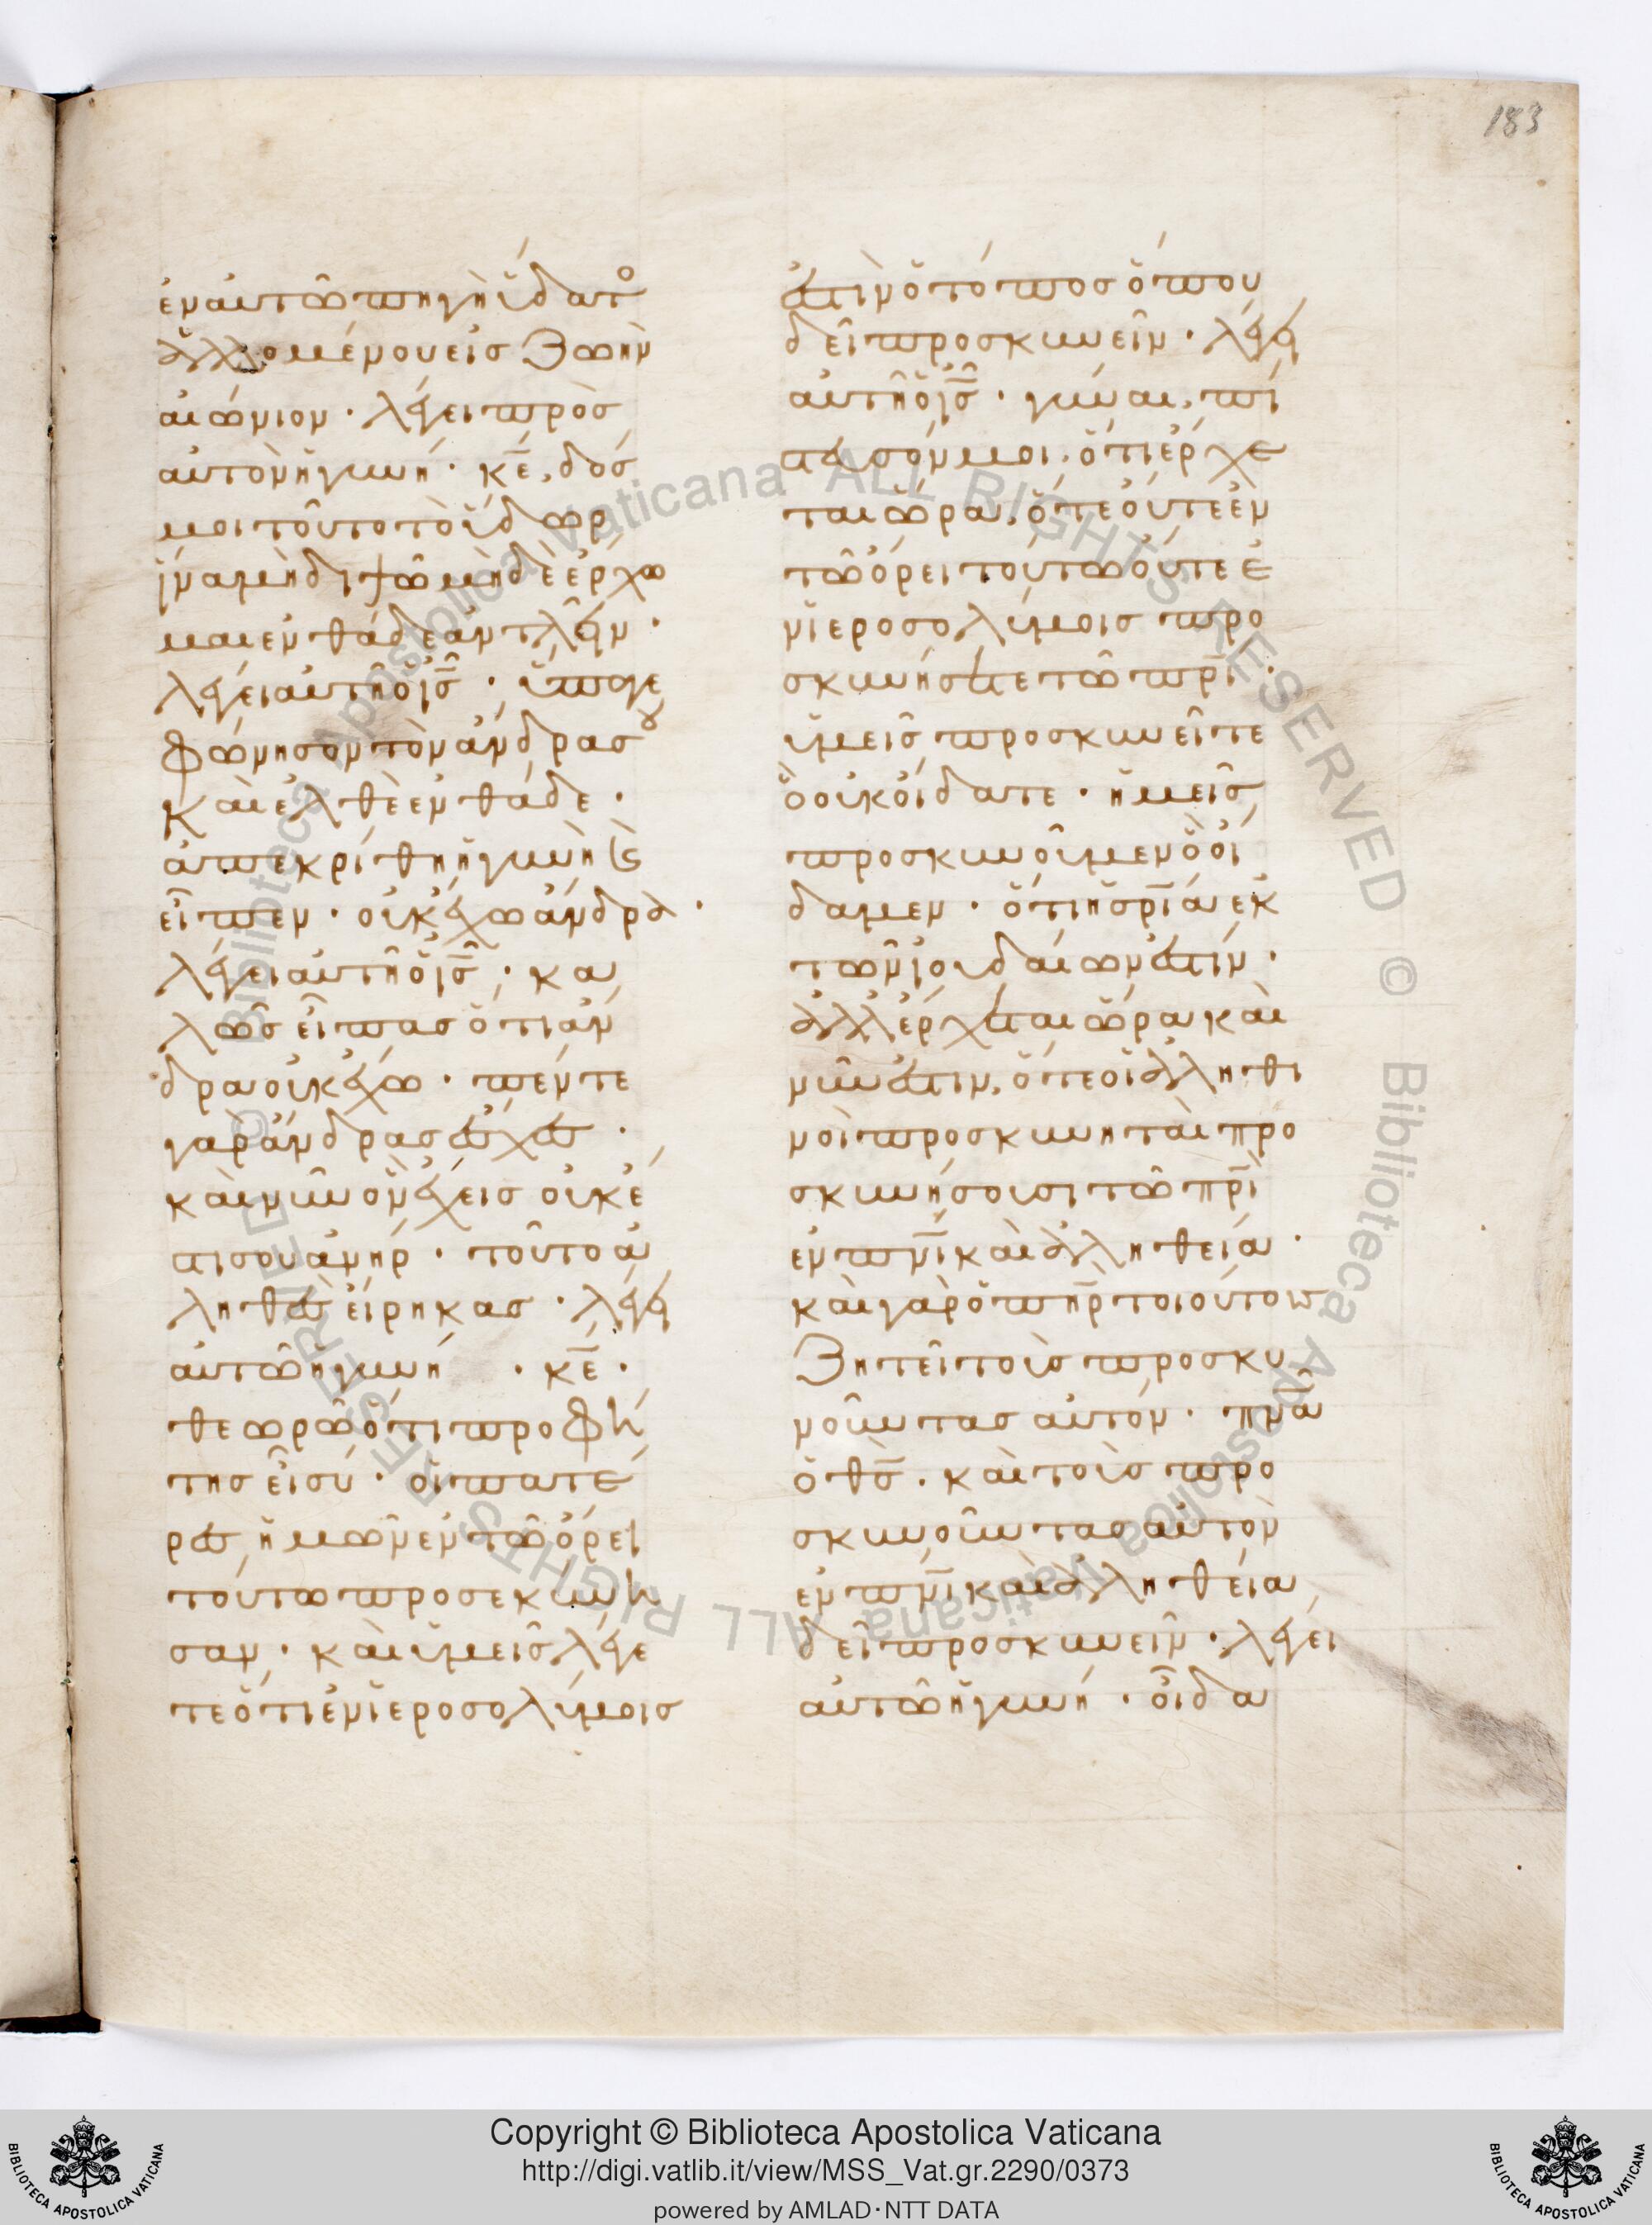 183
ἐν αὐτῶ πηγὴ ὕδατο
ἁλλομένου εἰς ζωὴν
αἰώνιον · λέγει πρὸς
αὐτὸν ἡ γυνή · κ̅ε̅, δός
μοι τοῦτο τὸ ὕδωρ
ἵνα μὴ διψῶ μηδὲ ἔρχω
μαι ἐνθάδε ἀντλεῖν ·
λέγει αὐτῆ ὁ ι̅ς̅ · ὕπαγε
φώνησον τὸν ἄνδρα σου
καὶ ἐλθὲ ἐνθάδε ·
ἀπεκρίθη ἡ γυνὴ ϗ
εἶπεν · οὐκ ἔχω ἄνδρα ·
λέγει αὐτῆ ὁ ι̅ς̅ · κα
λῶς εἶπας ὅτι ἄν
δρα οὐκ ἔχω · πέντε
γὰρ ἄνδρας ἔσχες ·
καὶ νῦν ὃν ἔχεις οὐκ ἔ
στι σου ἀνήρ · τοῦτο ἀ
ληθὲς εἴρηκας · λέγει
αὐτῶ ἡ γυνή · κ̅ε̅ ·
θεωρῶ ὅτι προφή
της εἶ σύ · οἱ πατέ
ρες ἡμῶν ἐν τῶ ὄρει
τούτω προσεκύνη
σαν · καὶ ὑμεῖς λέγε
τε ὅτι ἐν ἱεροσολύμοις
ἐστὶν ὁ τόπος ὅπου
δεῖ προσκυνεῖν · λέγει
αὐτῆ ὁ ι̅ς̅ · γύναι, πί
στευσόν μοι · ὅτι ἔρχε
ται ὥρα, ὅτε οὔτε ἐν
τῶ ὄρει τούτω οὔτε ἐ
ν ἱεροσολύμοις προ
σκυνήσετε τῶ π̅ρ̅ι̅ ·
ὑμεῖς προσκυνεῖτε
ὃ οὐκ οἴδατε · ἡμεῖς
προσκυνοῦμεν ὃ οἴ
δαμεν · ὅτι ἡ σ̅ρ̅ι̅α ἐκ
τῶν ἰουδαίων ἐστίν ·
ἀλλ' ἔρχεται ὥρα καὶ
νῦν ἐστιν, ὅτε οἱ ἀληθι
νοὶ προσκυνηταὶ προ
σκυνήσουσι τῶ π̅ρ̅ι̅
ἐν π̅ν̅ι̅ καὶ ἀληθεία ·
καὶ γὰρ ὁ π̅η̅ρ̅ τοιούτους
ζητεῖ τοὺς προσκυ
νοῦντας αὐτόν · π̅ν̅α̅
ὁ θ̅ς̅ · καὶ τοὺς προ
σκυνοῦντας αὐτὸν
ἐν π̅ν̅ι̅ καὶ ἀληθεία
δεῖ προσκυνεῖν · λέγει
αὐτῶ ἡ γυνή · οἶδα
© Biblioteca Apostolica Vaticana ALL RIGHTS RESERVED © Biblioteca Apostolica Vaticana ALL RIGHTS RESERVED
Copyright © Biblioteca Apostolica Vaticana
http://digi.vatlib.it/view/MSS_Vat.gr.2290/0373
powered by AMLAD · NTT DATA
BIBLIOTECA APOSTOLICA VATICANA
BIBLIOTECA APOSTOLICA VATICANA